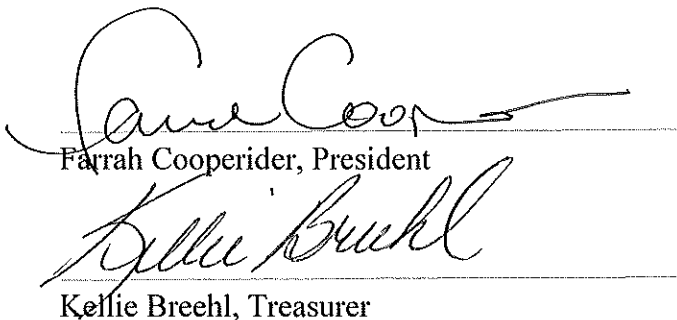 Farrah Cooperider, President
Kellie Breehl
Kellie Breehl, Treasurer